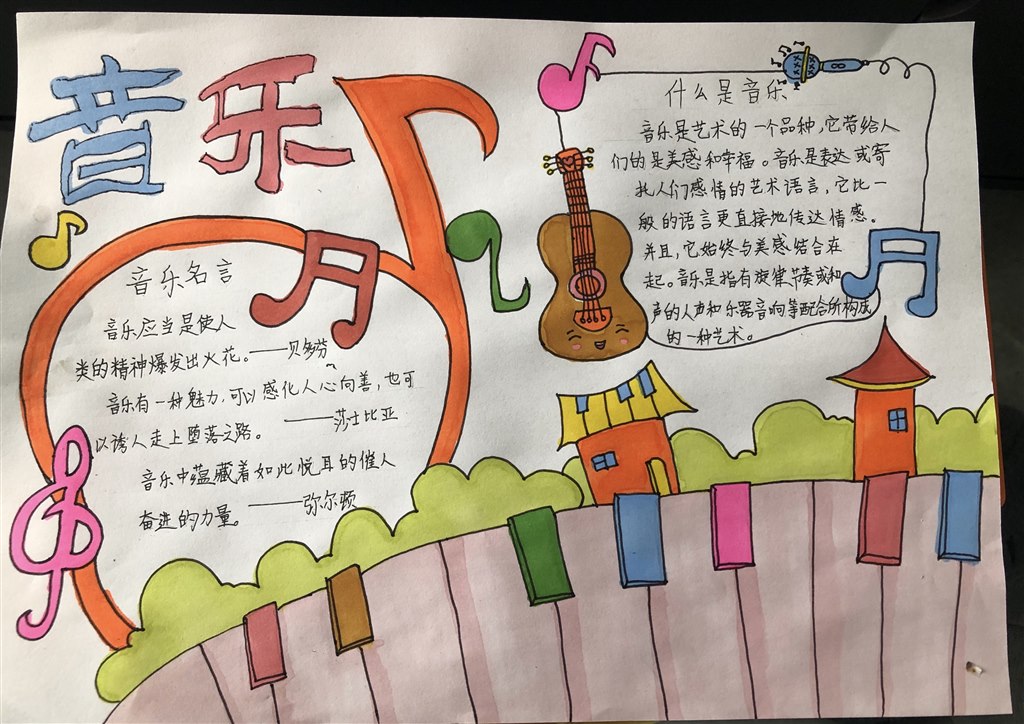 音乐
音乐名言
音乐应当是使人
类的精神爆发出火花。——贝多芬
音乐有一种魅力,可以感化人心向善,也可
以诱人走上堕落之路。——莎士比亚
音乐中蕴藏着如此悦耳的催人
奋进的力量。——弥尔顿
什么是音乐
音乐是艺术的一个品种,它带给人
们的是美感和幸福。音乐是表达或寄
托人们感情的艺术语言,它比一
般的语言更直接地传达情感。
并且,它始终与美感结合在
起。音乐是指有旋律、节奏或和
声的人声和乐器音响等配合所构成
的一种艺术。